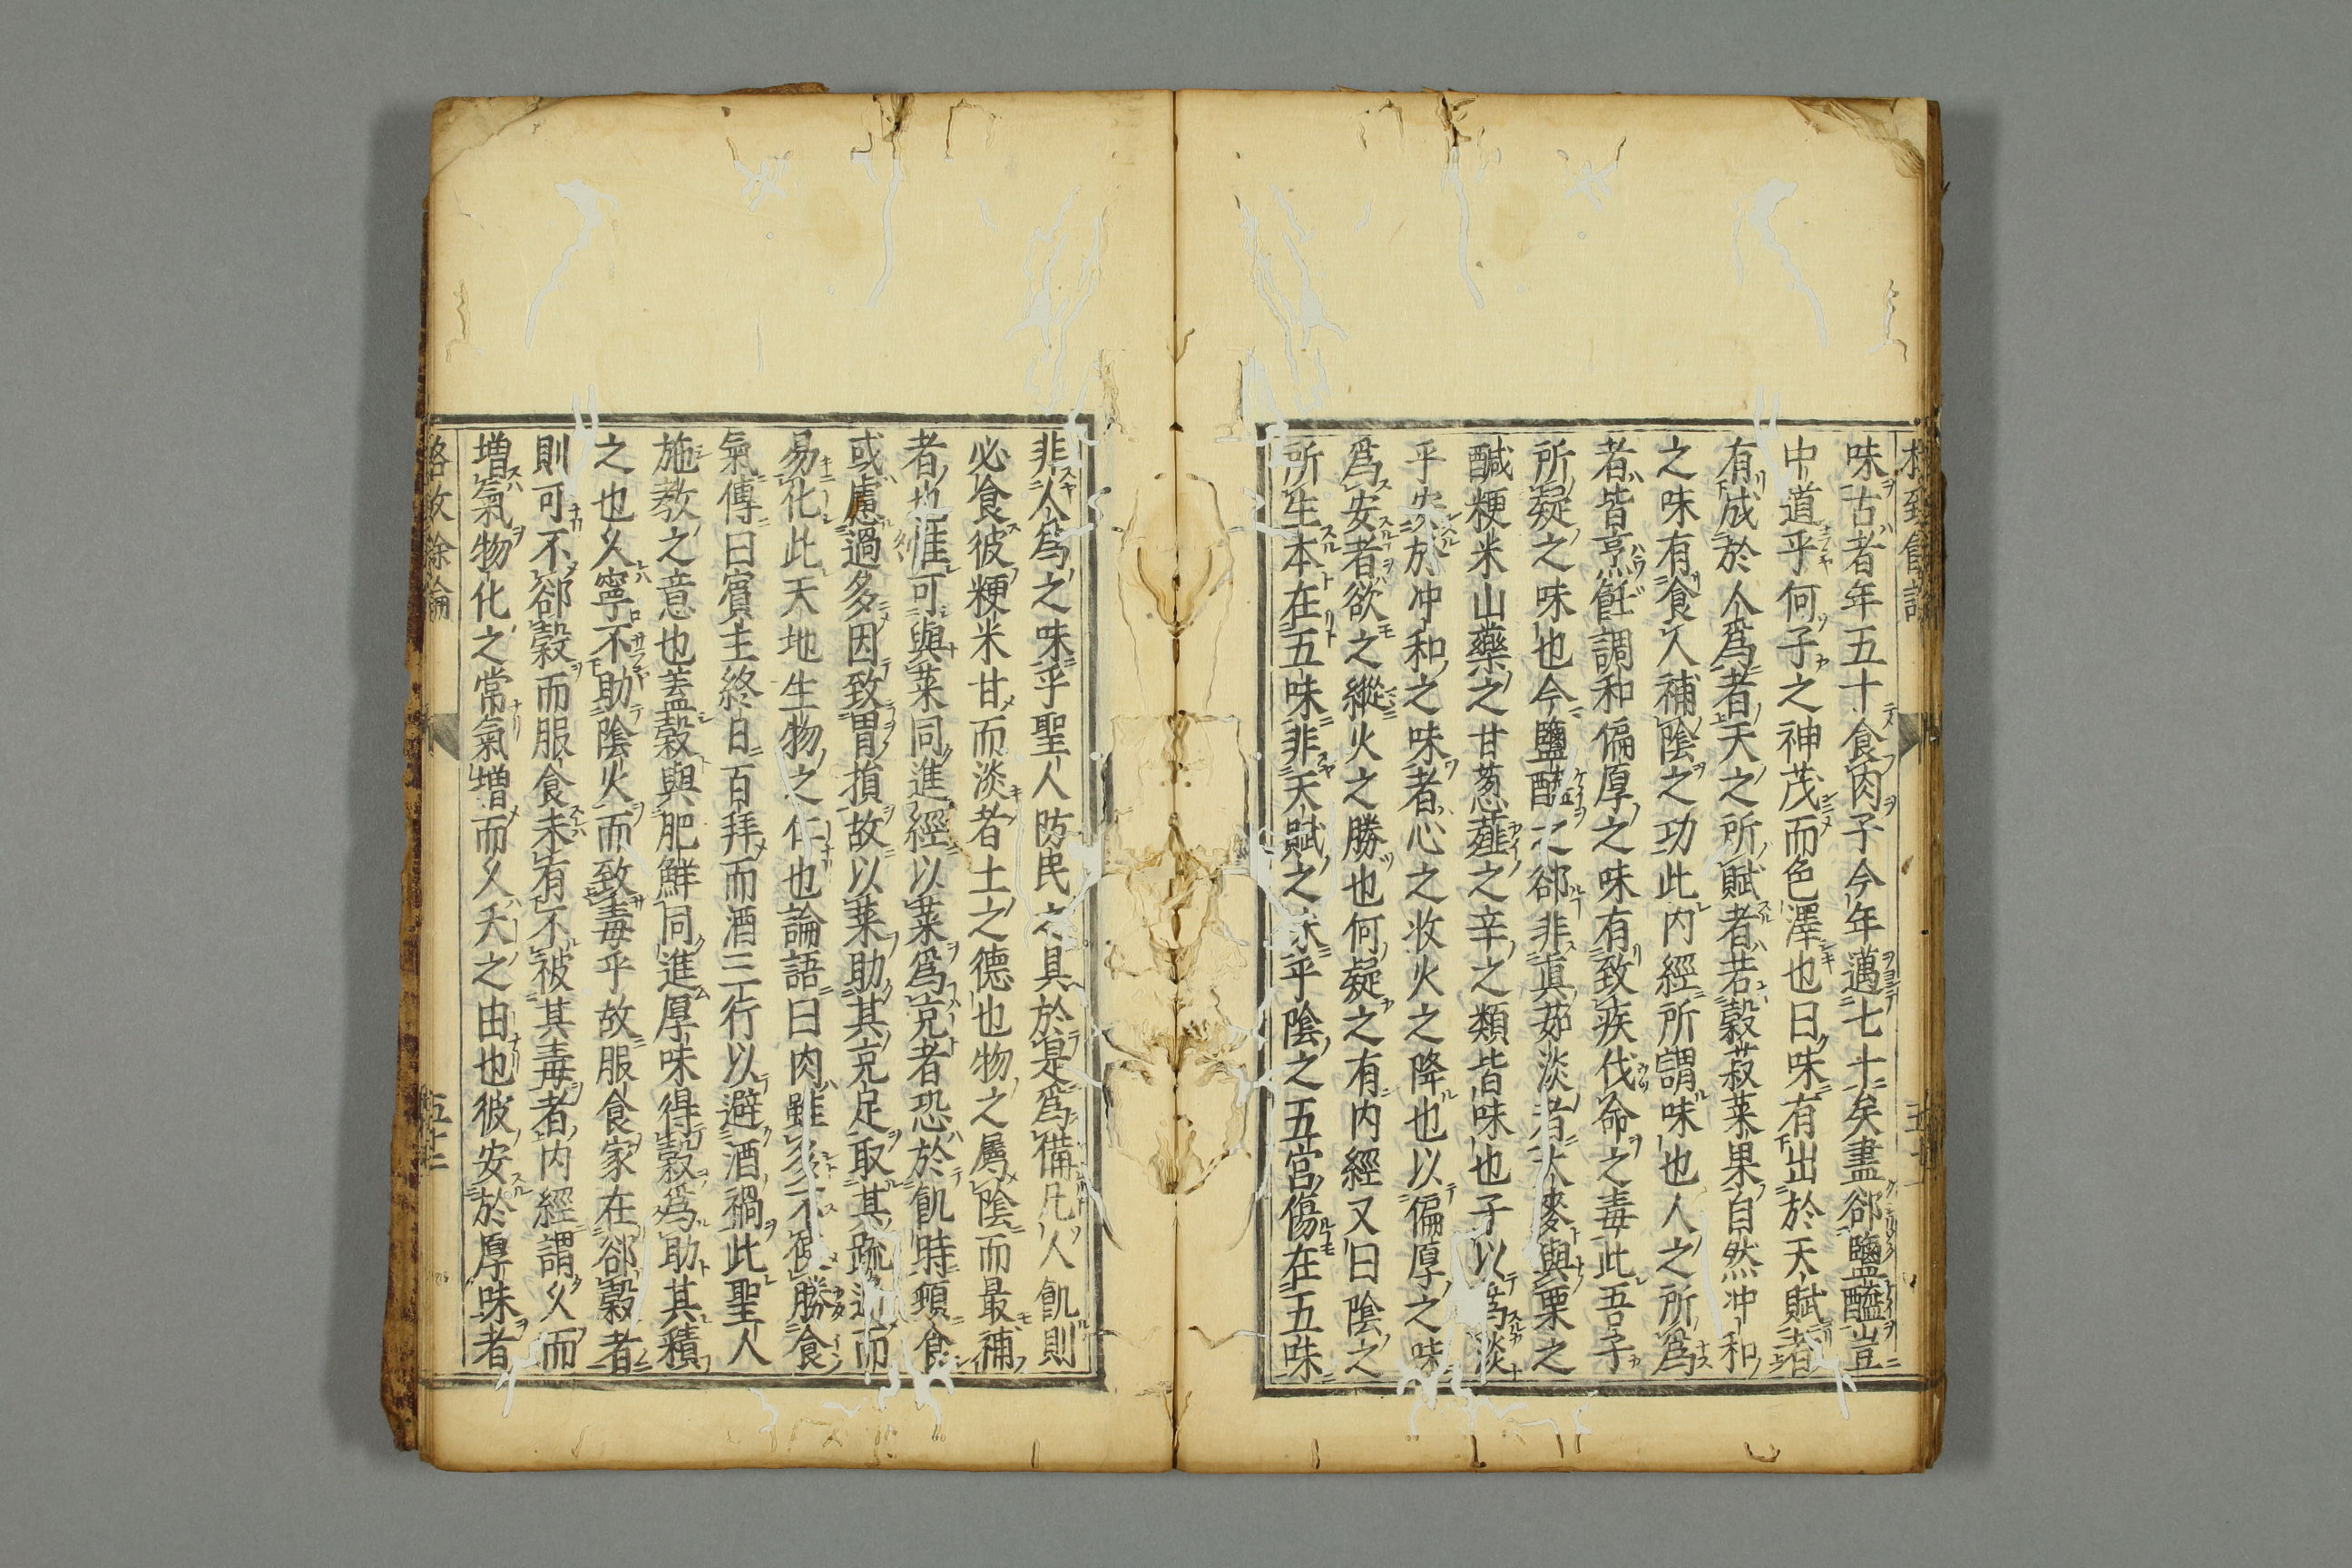 味古者年五十食肉子今年邁七十矣盡卻鹽醯豈
中道乎何子之神茂而色澤也曰味有出於天賦者
有成於人爲者天之所賦者若穀菽菜果自然冲和
之味有食人補陰之功此内經所謂味也人之所爲
者皆烹飪調和偏厚之味有致疾伐命之毒此吾子
所疑之味也今鹽醯之卻非真茹淡者大麥與栗之
鹹粳米山藥之甘葱薤之辛之類皆味也子以爲淡
乎安於冲和之味者心之收火之降也以偏厚之味
爲安者欲之縱火之勝也何疑之有内經又曰陰之
所生本在五味非天賦之味乎陰之五宮傷在五味
非人爲之味乎聖人防民之具於是爲備凡人飢則
必食彼粳米甘而淡者土之德也物之屬陰而最補
者也惟可與菜同進經以菜爲充者恐於飢時頓食
或慮過多因致胃損故以菜助其充足取其疏通而
易化此天地生物之仁也論語曰肉雖多不使勝食
氣傳曰賓主終日百拜而酒三行以避酒禍此聖人
施教之意也蓋穀與肥鮮同進厚味得穀爲助其積
之也乆寧不助陰火而致毒乎故服食家在卻穀者
則可不卻穀而服食未有不被其毒者内經謂乆而
増氣物化之常氣増而乆夭之由也彼安於厚味者
格致餘論
五十二